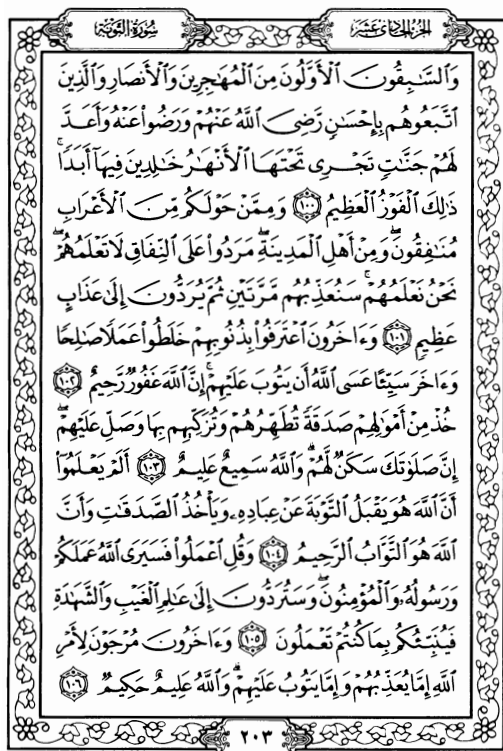 الجزء الحادي عشر
سورة التوبة
وَالسَّـٰبِقُونَ الْأَوَّلُونَ مِنَ الْمُهَـٰجِرِينَ وَالْأَنصَارِ وَالَّذِينَ
اتَّبَعُوهُم بِإِحْسَـٰنٍ رَّضِىَ اللَّهُ عَنْهُمْ وَرَضُوا۟ عَنْهُ وَأَعَدَّ
لَهُمْ جَنَّـٰتٍ تَجْرِى تَحْتَهَا الْأَنْهَـٰرُ خَـٰلِدِينَ فِيهَآ أَبَدًا ۚ
ذَٰلِكَ الْفَوْزُ الْعَظِيمُ ١٠٠ وَمِمَّنْ حَوْلَكُم مِّنَ الْأَعْرَابِ
مُنَـٰفِقُونَ ۖ وَمِنْ أَهْلِ الْمَدِينَةِ ۖ مَرَدُوا۟ عَلَى النِّفَاقِ لَا تَعْلَمُهُمْ ۖ
نَحْنُ نَعْلَمُهُمْ ۚ سَنُعَذِّبُهُم مَّرَّتَيْنِ ثُمَّ يُرَدُّونَ إِلَىٰ عَذَابٍ
عَظِيمٍ ١٠١ وَءَاخَرُونَ اعْتَرَفُوا۟ بِذُنُوبِهِمْ خَلَطُوا۟ عَمَلًا صَـٰلِحًا
وَءَاخَرَ سَيِّئًا عَسَى اللَّهُ أَن يَتُوبَ عَلَيْهِمْ ۚ إِنَّ اللَّهَ غَفُورٌ رَّحِيمٌ ١٠٢
خُذْ مِنْ أَمْوَٰلِهِمْ صَدَقَةً تُطَهِّرُهُمْ وَتُزَكِّيهِم بِهَا وَصَلِّ عَلَيْهِمْ ۖ
إِنَّ صَلَوٰتَكَ سَكَنٌ لَّهُمْ ۗ وَاللَّهُ سَمِيعٌ عَلِيمٌ ١٠٣ أَلَمْ يَعْلَمُوٓا۟
أَنَّ اللَّهَ هُوَ يَقْبَلُ التَّوْبَةَ عَنْ عِبَادِهِۦ وَيَأْخُذُ الصَّدَقَـٰتِ وَأَنَّ
اللَّهَ هُوَ التَّوَّابُ الرَّحِيمُ ١٠٤ وَقُلِ اعْمَلُوا۟ فَسَيَرَى اللَّهُ عَمَلَكُمْ
وَرَسُولُهُۥ وَالْمُؤْمِنُونَ ۖ وَسَتُرَدُّونَ إِلَىٰ عَـٰلِمِ الْغَيْبِ وَالشَّهَـٰدَةِ
فَيُنَبِّئُكُم بِمَا كُنتُمْ تَعْمَلُونَ ١٠٥ وَءَاخَرُونَ مُرْجَوْنَ لِأَمْرِ
اللَّهِ إِمَّا يُعَذِّبُهُمْ وَإِمَّا يَتُوبُ عَلَيْهِمْ ۗ وَاللَّهُ عَلِيمٌ حَكِيمٌ ١٠٦
٢٠٣